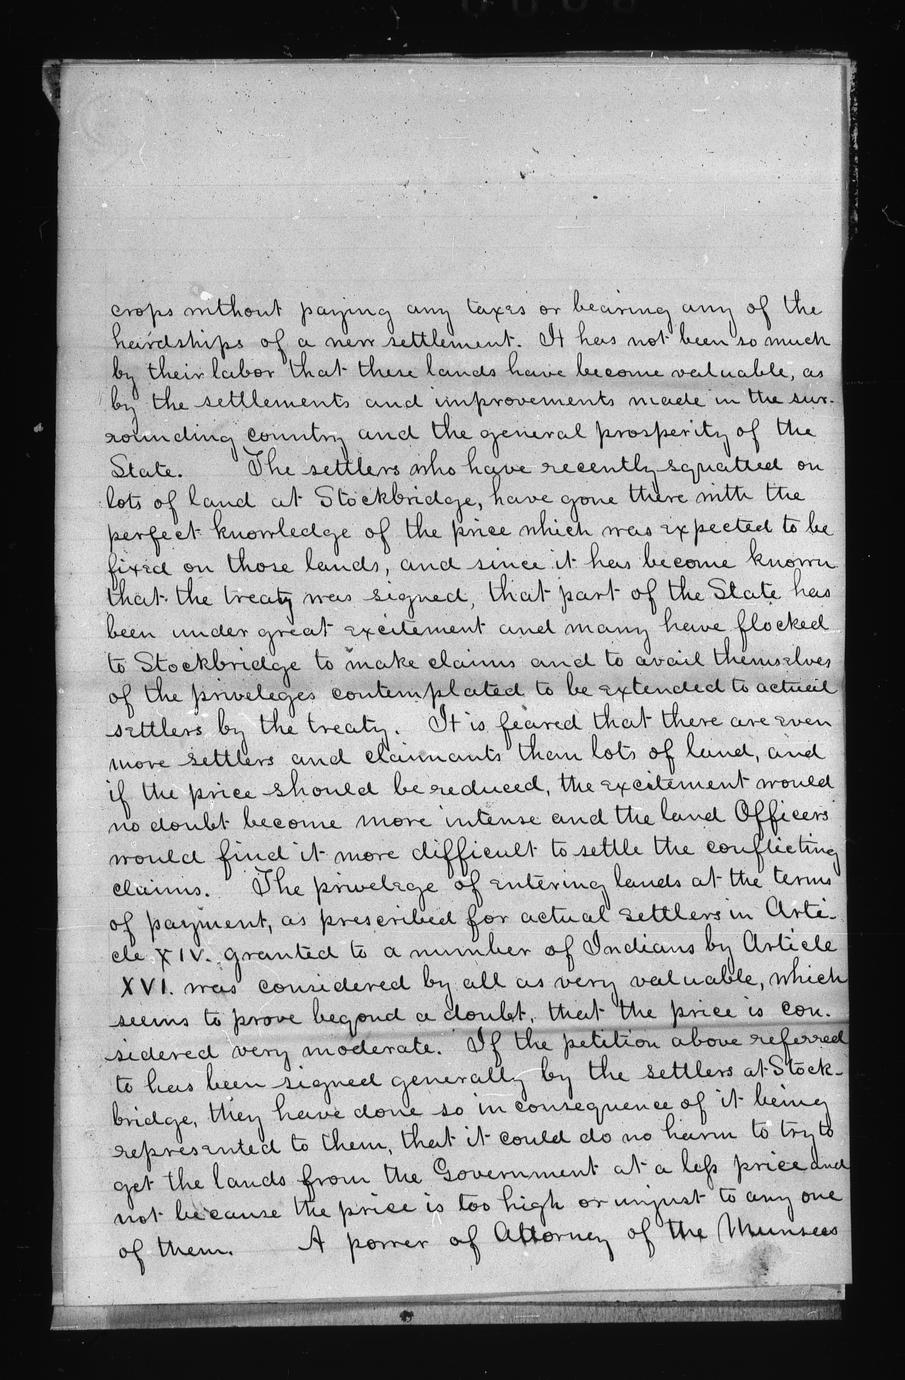 crops without paying any taxes or bearing any of the
hardships of a new settlement. It has not been so much
by their labor that these lands have become valuable, as
by the settlements and improvements made in the sur-
rounding country and the general prosperity of the
State. The settlers who have recently squatted on
lots of land at Stockbridge, have gone there with the
perfect knowledge of the price which was expected to be
fixed on those lands, and since it has become known
that the treaty was signed, that part of the State has
been under great excitement and many have flocked
to Stockbridge to make claims and to avail themselves
of the priveleges contemplated to be extended to actual
settlers by the treaty. It is feared that there are even
more settlers and claimants than lots of land, and
if the price should be reduced, the excitement would
no doubt become more intense and the land Officers
would find it more difficult to settle the conflicting
claims. The privelege of entering lands at the terms
of payment, as prescribed for actual settlers in Arti-
cle XIV. granted to a number of Indians by Article
XVI. was considered by all as very valuable, which
seems to prove beyond a doubt, that the price is con-
sidered very moderate. If the petition above referred
to has been signed generally by the settlers at Stock-
bridge, they have done so in consequence of it being
represented to them, that it could do no harm to try to
get the lands from the Government at a less price and
not because the price is too high or unjust to any one
of them. A power of Attorney of the Munsees